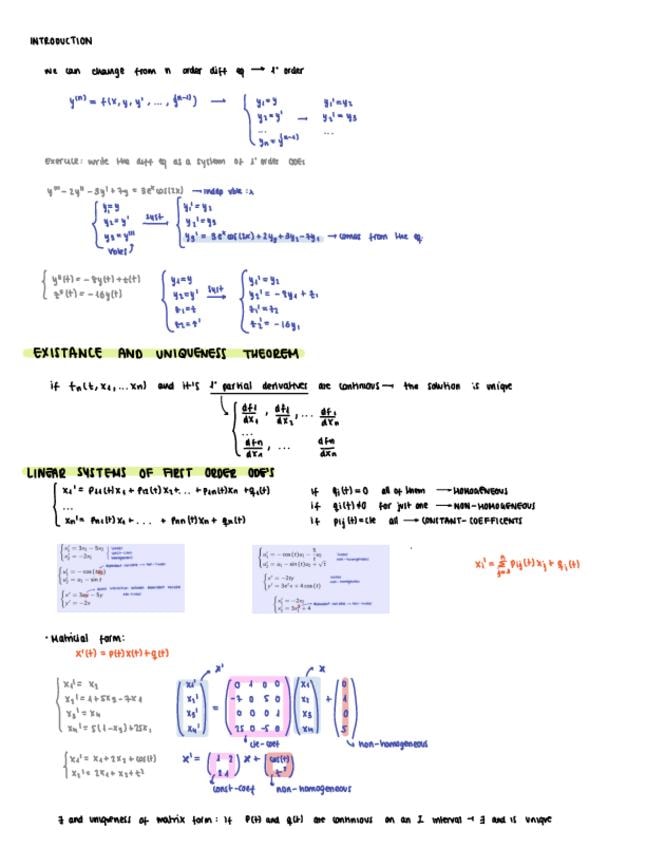 INTRODUCTION
we can change from n order diff eq → 1° order
y⁽ⁿ⁾ = f(x, y, y', ..., y⁽ⁿ⁻¹⁾) →
y₁=y
y₂=y' →
...
yₙ=y⁽ⁿ⁻¹⁾
y₁'=y₂
y₂'=y₃
...
exercise: write the diff eq as a system of 1° order ODEs
y''' - 2y'' - 3y' + 7y = 3eˣcos(2x) → indep vble: x
y₁=y
y₂=y'
y₃=y'''
vbles
syst
y₁'=y₂
y₂'=y₃
y₃' = 3eˣcos(2x)+2y₃+3y₂-7y₁ → comes from the eq.
y''(t) = -8y(t)+z(t)
z''(t) = -16y(t)
y₁=y
y₂=y'
z₁=z
z₂=z'
syst
y₁'=y₂
y₂'= -8y₁ + z₁
z₁'=z₂
z₂'= -16y₁
EXISTANCE AND UNIQUENESS THEOREM
if fn(t, x₁, ... xn) and it's 1° partial derivatives are continuous → the solution is unique
df₁/dx₁ , df₁/dx₂ , ... df₁/dxn
...
dfn/dx₁ , ... dfn/dxn
LINEAR SYSTEMS OF FIRST ORDER ODE'S
x₁' = p₁₁(t)x₁ + p₁₂(t)x₂+... + p₁n(t)xn + q₁(t)
...
xn' = pn₁(t)x₁ + ... + pnn(t)xn + qn(t)
if qi(t)=0 all of them → HOMOGENEOUS
if qi(t)≠0 for just one → NON-HOMOGENEOUS
if pij(t)=cte all → CONSTANT-COEFFICENTS
xi' = Σ pij(t)xj + qi(t)
· Matricial form:
x'(t) = P(t)x(t)+q(t)
x₁' = x₂
x₂' = 4+5x₃-7x₁
x₃' = x₄
x₄' = 5(1-x₃)+25x₁
x'
x
x₁' 0 1 0 0 x₁ 0
x₂' = -7 0 5 0 x₂ + 4
x₃' 0 0 0 1 x₃ 0
x₄' 25 0 -5 0 x₄ 5
cte-coef
non-homogeneous
x₁' = x₁+2x₂+cos(t)
x₂' = 2x₁+x₂+t²
x' = (1 2) x + (cos(t))
(2 1) (t²)
const-coef non-homogeneous
∃ and uniqueness of matrix form: if P(t) and q(t) are continuous on an I interval → ∃ and is unique